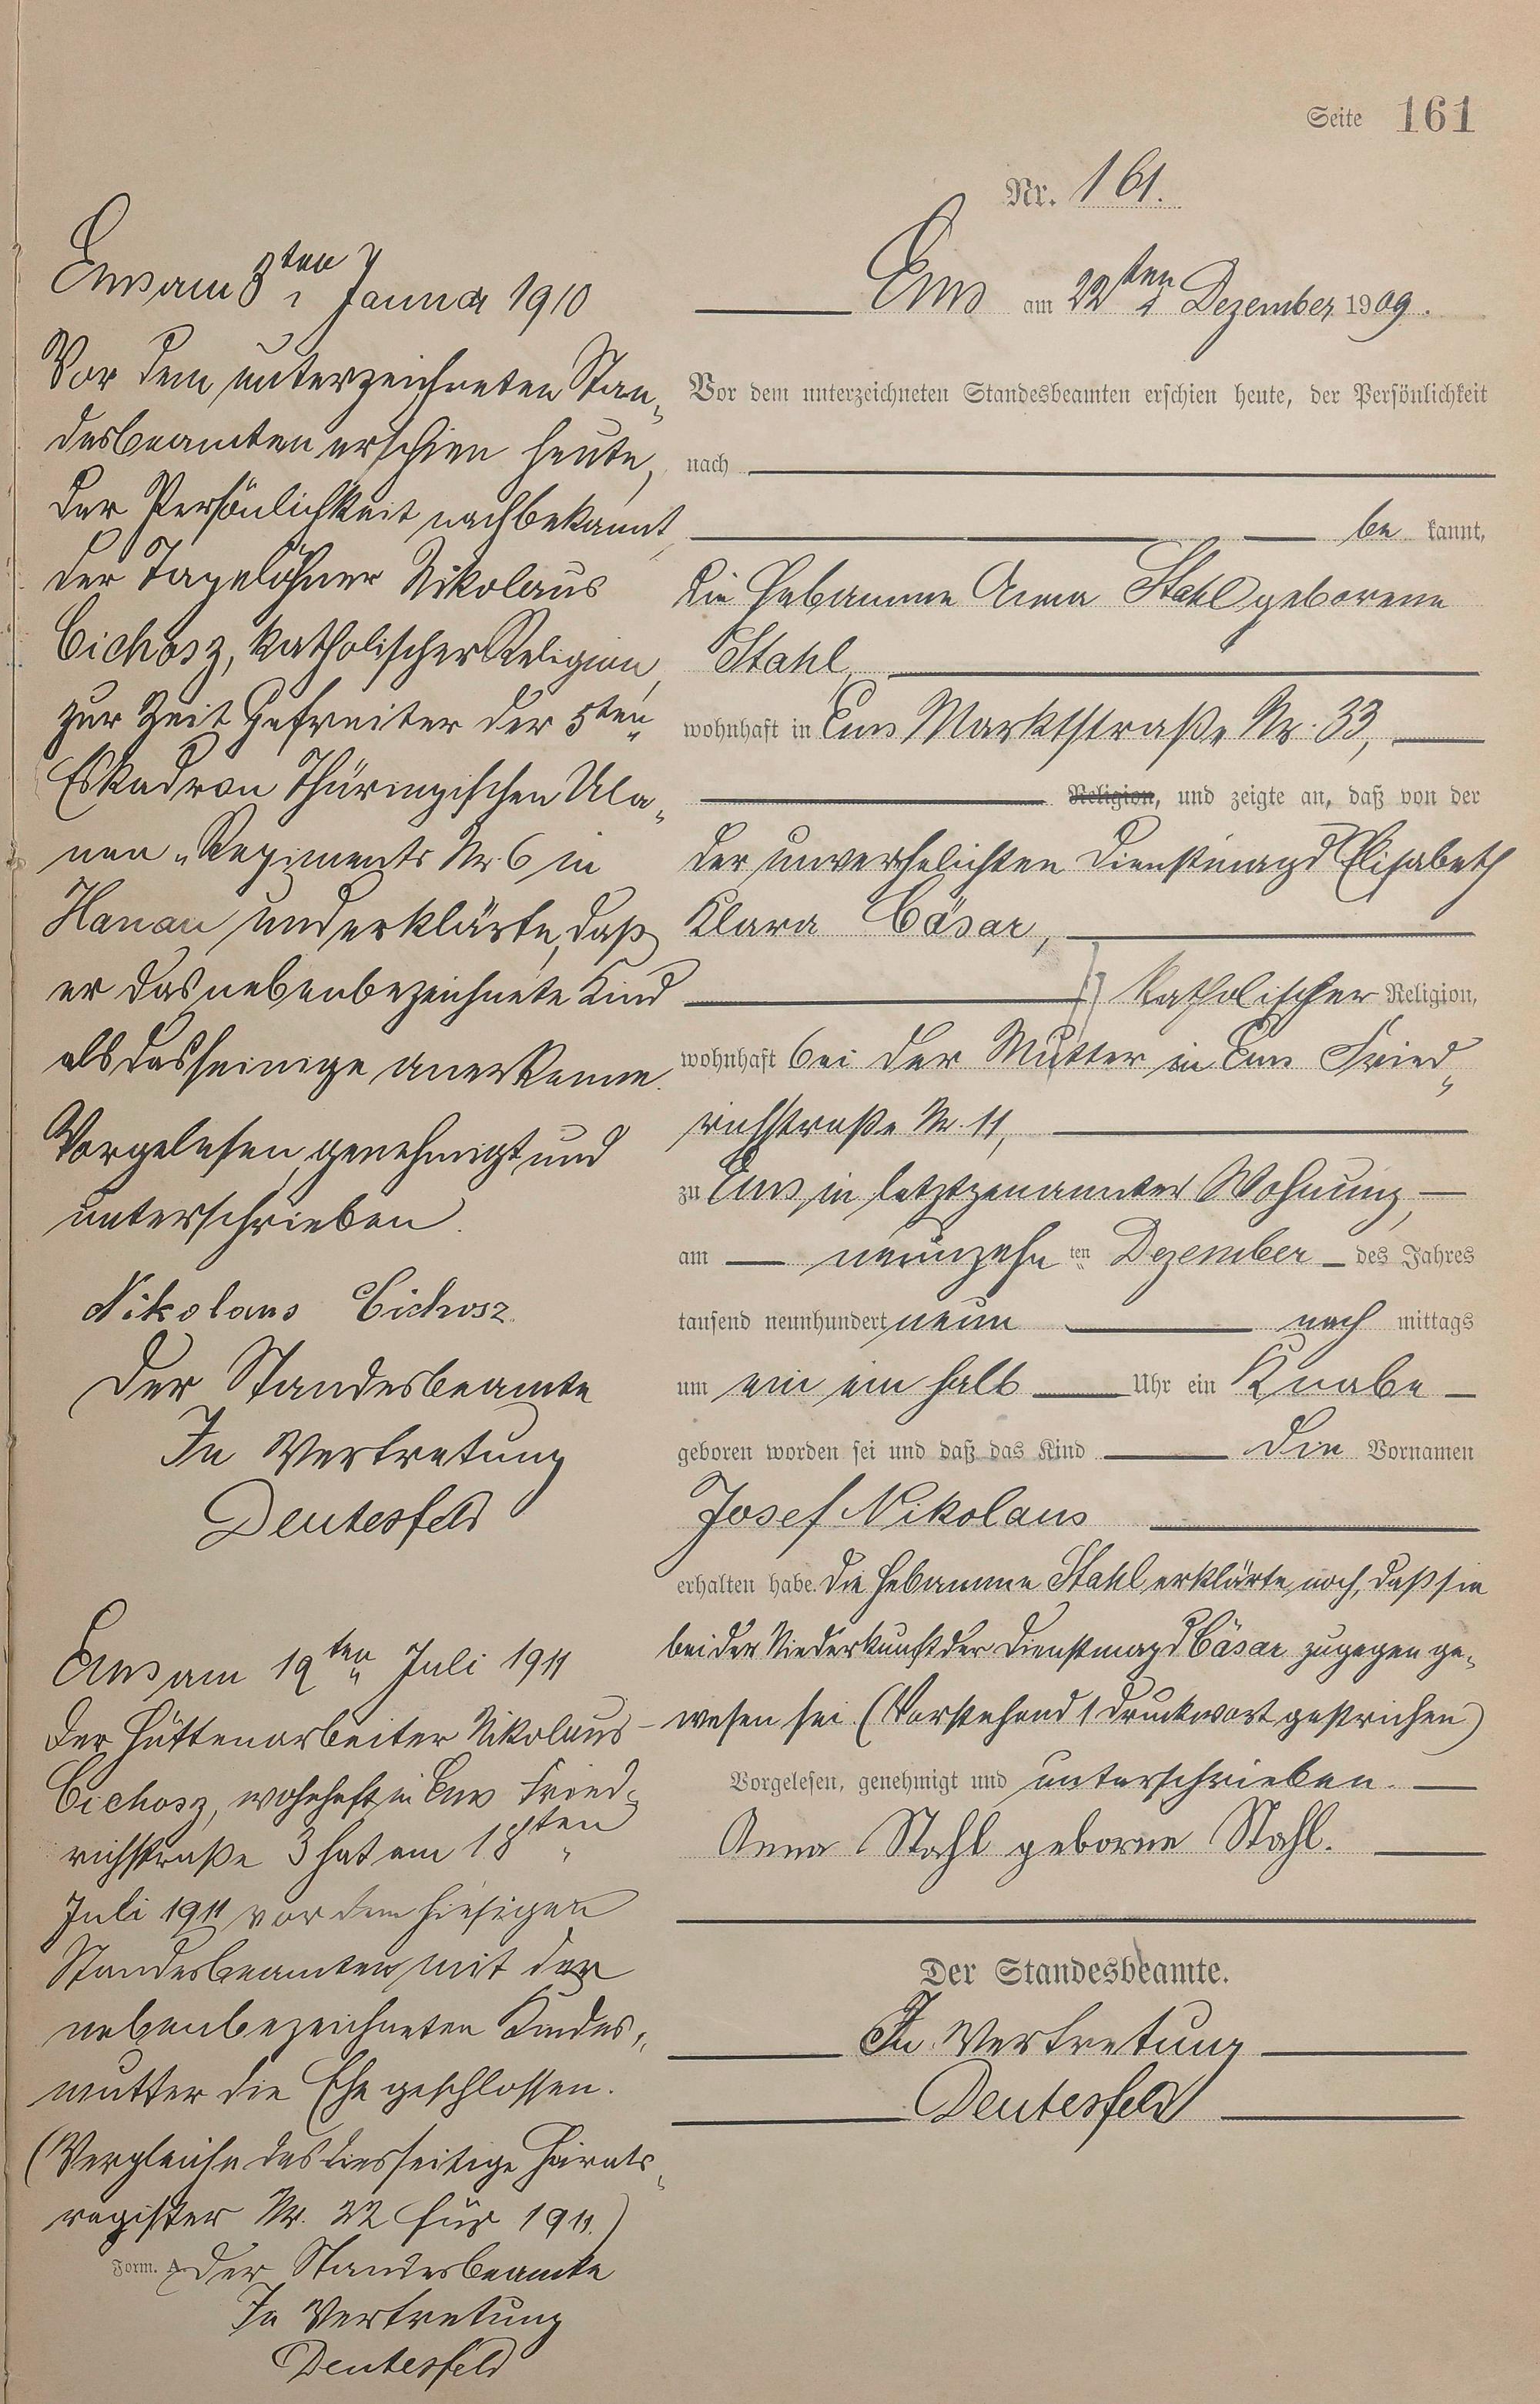 Seite 161
Nr. 161.
Ems am 22ten Dezember 1909.
Vor dem unterzeichneten Standesbeamten erschien heute, der Persönlichkeit
nach
be kannt,
die Hebamme Anna Stahl geborene
Stahl,
wohnhaft in Ems Marktstraße Nr. 33,
Religion, und zeigte an, daß von der
der unverehelichten Dienstmagd Elisabeth
Klara Cäsar,
katholischer Religion,
wohnhaft bei der Mutter in Ems Fried-
richstraße Nr. 11,
zu Ems in letztgenannter Wohnung,
am neunzehn ten Dezember des Jahres
tausend neunhundert neun nach mittags
um ein ein halb Uhr ein Knabe
geboren worden sei und daß das Kind die Vornamen
Josef Nikolaus
erhalten habe. Die Hebamme Stahl erklärte noch, daß sie
bei der Niederkunft der Dienstmagd Cäsar zugegen ge-
wesen sei. (Vorstehend 1 Druckwort gestrichen)
Vorgelesen, genehmigt und unterschrieben.
Anna Stahl geborne Stahl.
Der Standesbeamte.
In Vertretung
Deutesfeld
Ems am 3ten Januar 1910
Vor dem unterzeichneten Stan-
desbeamten erschien heute,
der Persönlichkeit nach bekannt,
der Tagelöhner Nikolaus
Cichosz, katholischer Religion,
zur Zeit Gefreiter der 5ten
Eskadron Thüringischen Ula-
nen-Regiments Nr. 6 in
Hanau und erklärte, daß
er das nebenbezeichnete Kind
als das seinige anerkenne.
Vorgelesen, genehmigt und
unterschrieben.
Nikolaus Cichosz.
Der Standesbeamte
In Vertretung
Deutesfeld
Ems am 19ten Juli 1911
Der Hüttenarbeiter Nikolaus
Cichosz, wohnhaft in Ems Fried-
richstraße 3 hat am 18ten
Juli 1911 vor dem hiesigen
Standesbeamten mit der
nebenbezeichneten Kindes-
mutter die Ehe geschlossen.
(Vergleiche das diesseitige Heirats-
register Nr. 22 für 1911.)
Form. A. Der Standesbeamte
In Vertretung
Deutesfeld